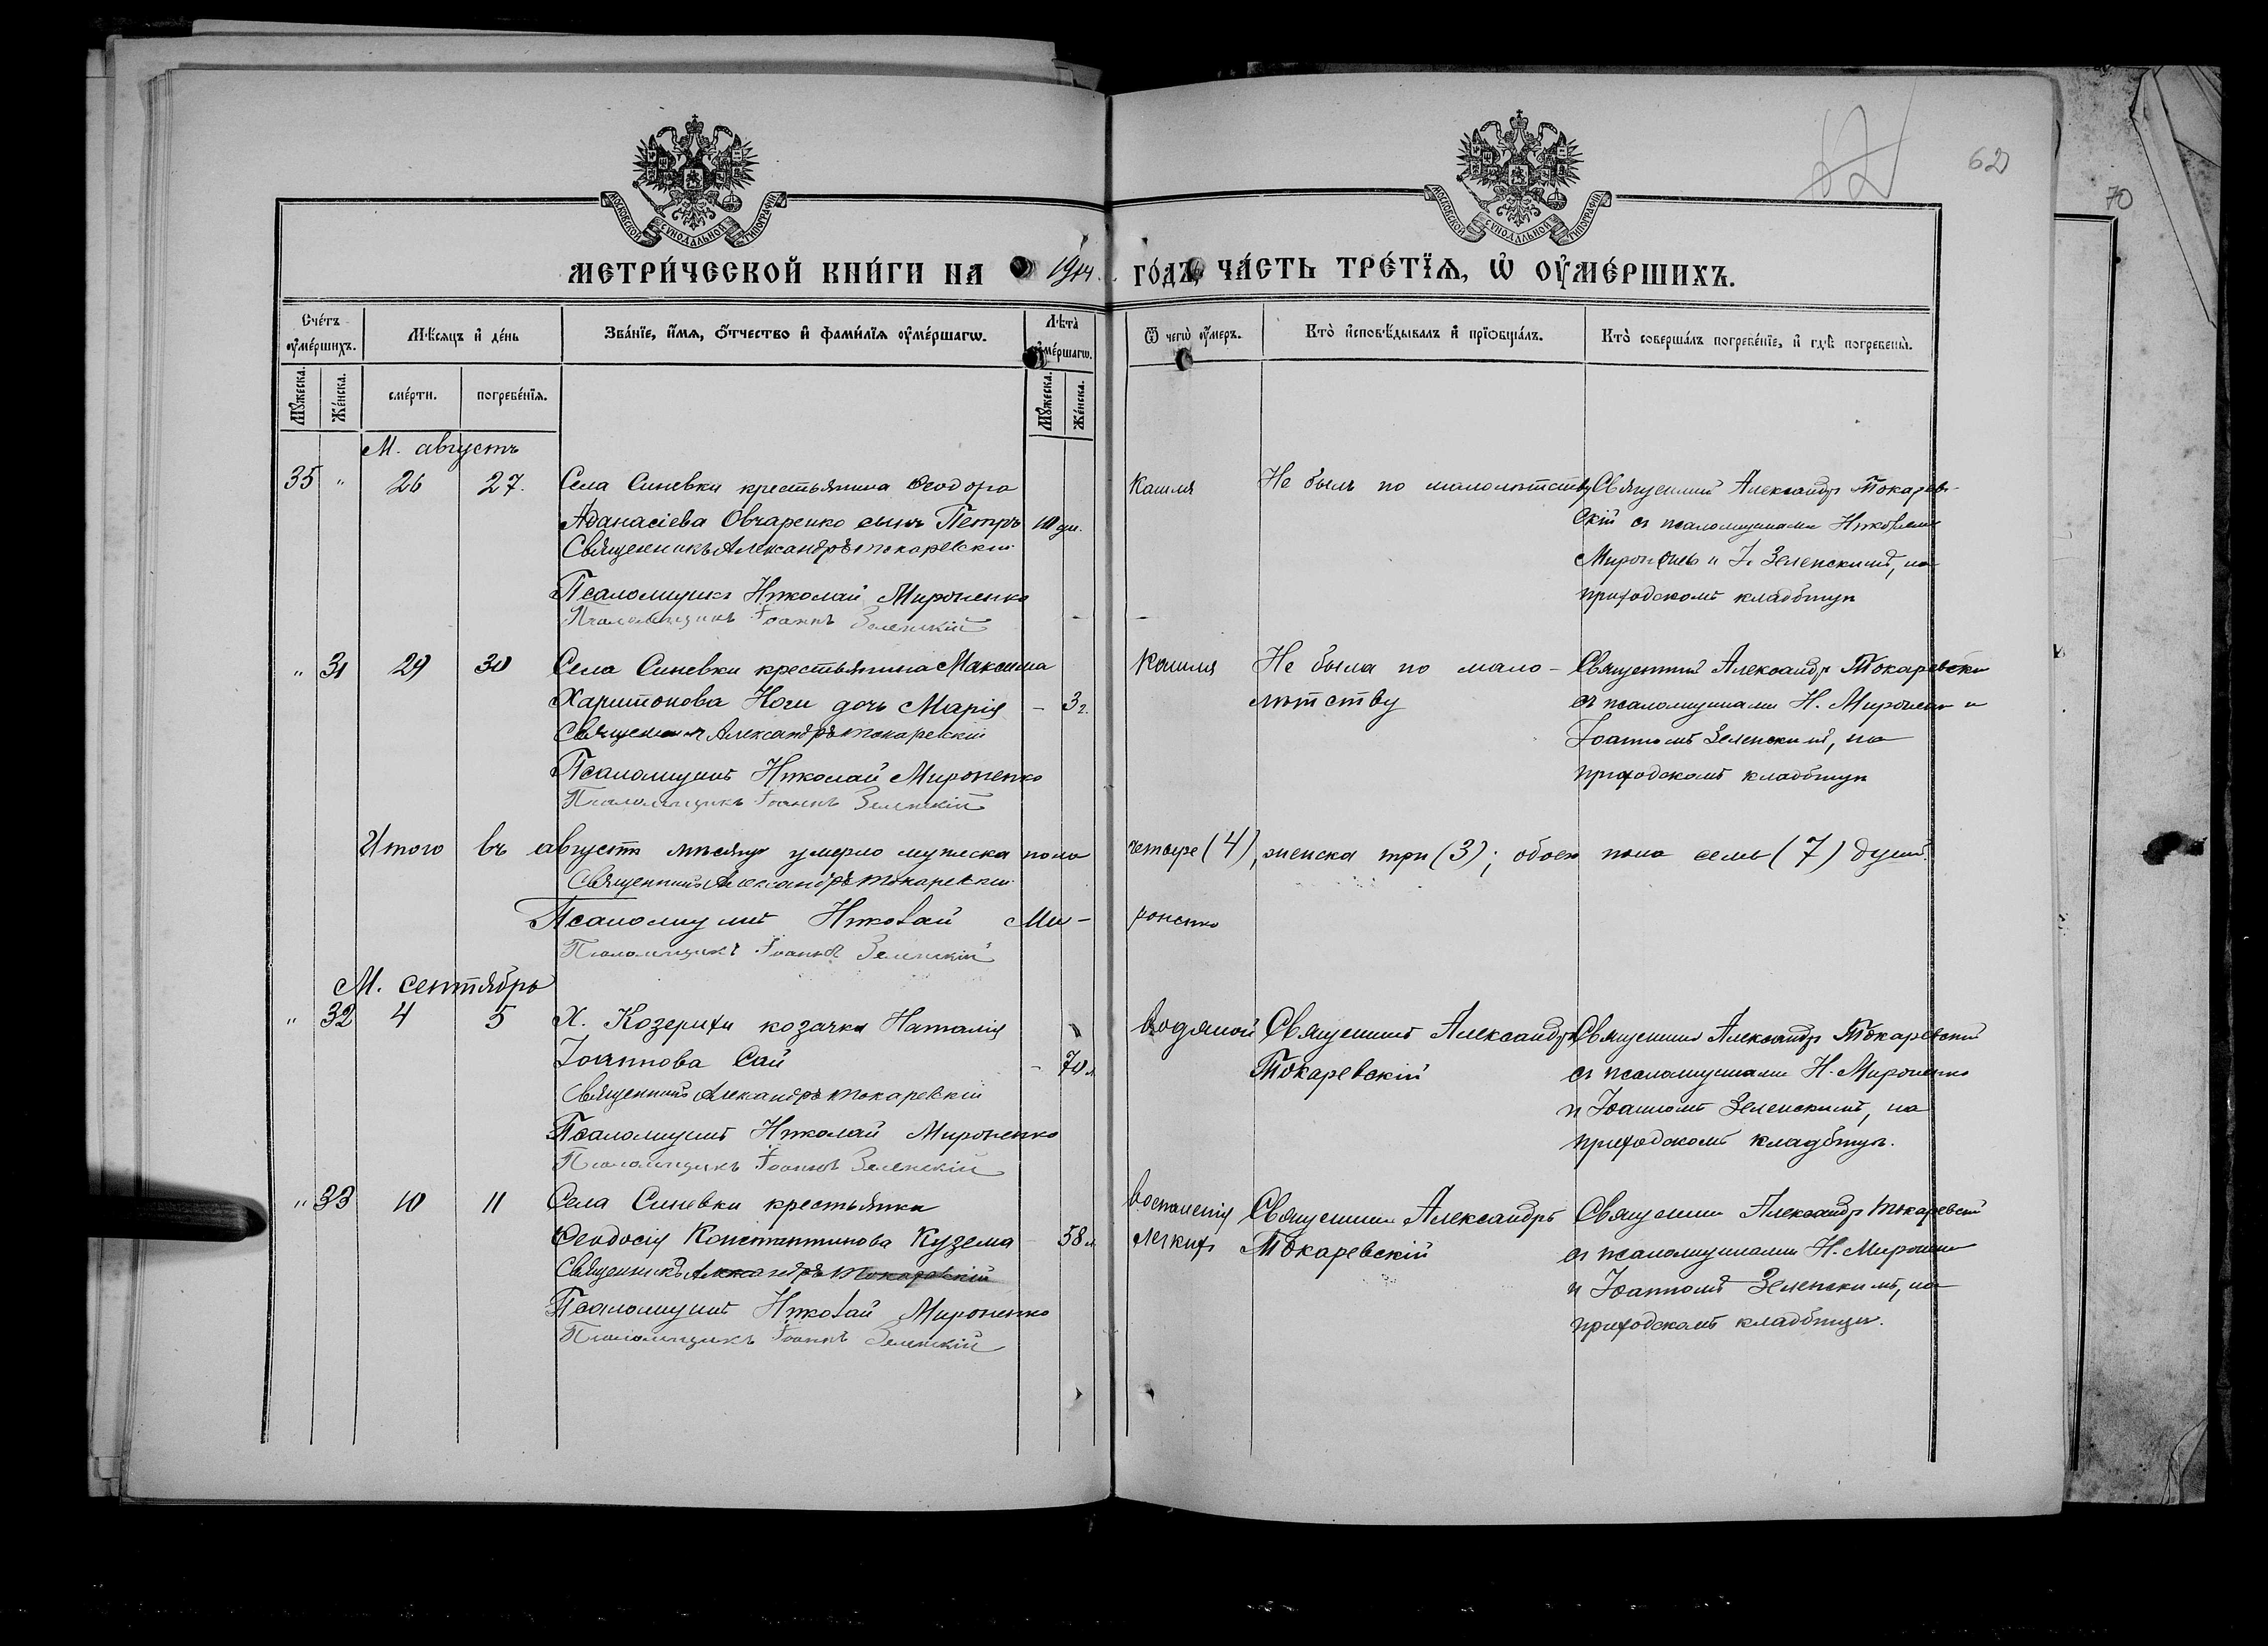 62
70
МОСКОВСКОЙ СУНОДАЛЬНОЙ ТИПОГРАФІИ
МОСКОВСКОЙ СУНОДАЛЬНОЙ ТИПОГРАФІИ
МЕТРИ́ЧЕСКОЙ КНИ́ГИ НА 1914 ГО́ДЪ, ЧА́СТЬ ТРЕ́ТЇѦ, Ѡ҆ ОУ҆МЕ́РШИХЪ.
Сче́тъ оу҆ме́ршихъ.
Мѣ́сѧцъ и҆ де́нь
Зва́нїе, и҆́мѧ, ѻ҆́тчество и҆ фами́лїѧ оу҆ме́ршагѡ.
Лѣта̀ оу҆ме́ршагѡ.
Ѿ чегѡ̀ оу҆́меръ.
Кто̀ и҆сповѣ́дывалъ и҆ прїѡбща́лъ.
Кто̀ соверша́лъ погребе́нїе, и҆ гдѣ̀ погребены̀.
Мꙋ́жеска.
Же́нска.
сме́рти.
погребе́нїѧ.
Мꙋ́жеска.
Же́нска.
М. августъ
35 " 26 27. Села Синевки крестьянина Ѳеодора
Аѳанасіева Овчаренко сынъ Петръ 10 дн.
Священникъ Александръ Токаревскій
Псаломщикъ Николай Мироненко
Псаломщикъ Іоаннъ Зеленскій
Кашля
Не былъ по малолѣтству
Священникъ Александръ Токарев-
скій съ псаломщиками Николаемъ
Мироненко и І. Зеленскимъ, на
приходскомъ кладбищѣ
" 31 29 30 Села Синевки крестьянина Максима
Харитонова Ноги дочь Марія - 3 г.
Священникъ Александръ Токаревскій
Псаломщикъ Николай Мироненко
Псаломщикъ Іоаннъ Зеленскій
Кашля
Не была по мало-
лѣтству
Священникъ Александръ Токаревскій
съ псаломщиками Н. Мироненко и
Іоанномъ Зеленскимъ, на
приходскомъ кладбищѣ
Итого въ августѣ мѣсяцѣ умерло мужеска пола четыре (4), женска три (3); обоего пола семь (7) душъ.
Священникъ Александръ Токаревскій
Псаломщикъ Николай Ми-
роненко
Псаломщикъ Іоаннъ Зеленскій
М. сентябрь
" 32 4 5 Х. Козерихи козачка Наталія
Іоаннова Сай - 70 л.
Священникъ Александръ Токаревскій
Псаломщикъ Николай Мироненко
Псаломщикъ Іоаннъ Зеленскій
Водяной
Священникъ Александръ
Токаревскій
Священникъ Александръ Токаревскій
съ псаломщиками Н. Мироненко
и Іоанномъ Зеленскимъ, на
приходскомъ кладбищѣ.
" 33 10 11 Села Синевки крестьянка
Ѳеодосія Константинова Кузема 58 л.
Священникъ Александръ Токаревскій
Псаломщикъ Николай Мироненко
Псаломщикъ Іоаннъ Зеленскій
Воспаленія
легкихъ
Священникъ Александръ
Токаревскій
Священникъ Александръ Токаревскій
съ псаломщиками Н. Мироненко
и Іоанномъ Зеленскимъ, на
приходскомъ кладбищѣ.